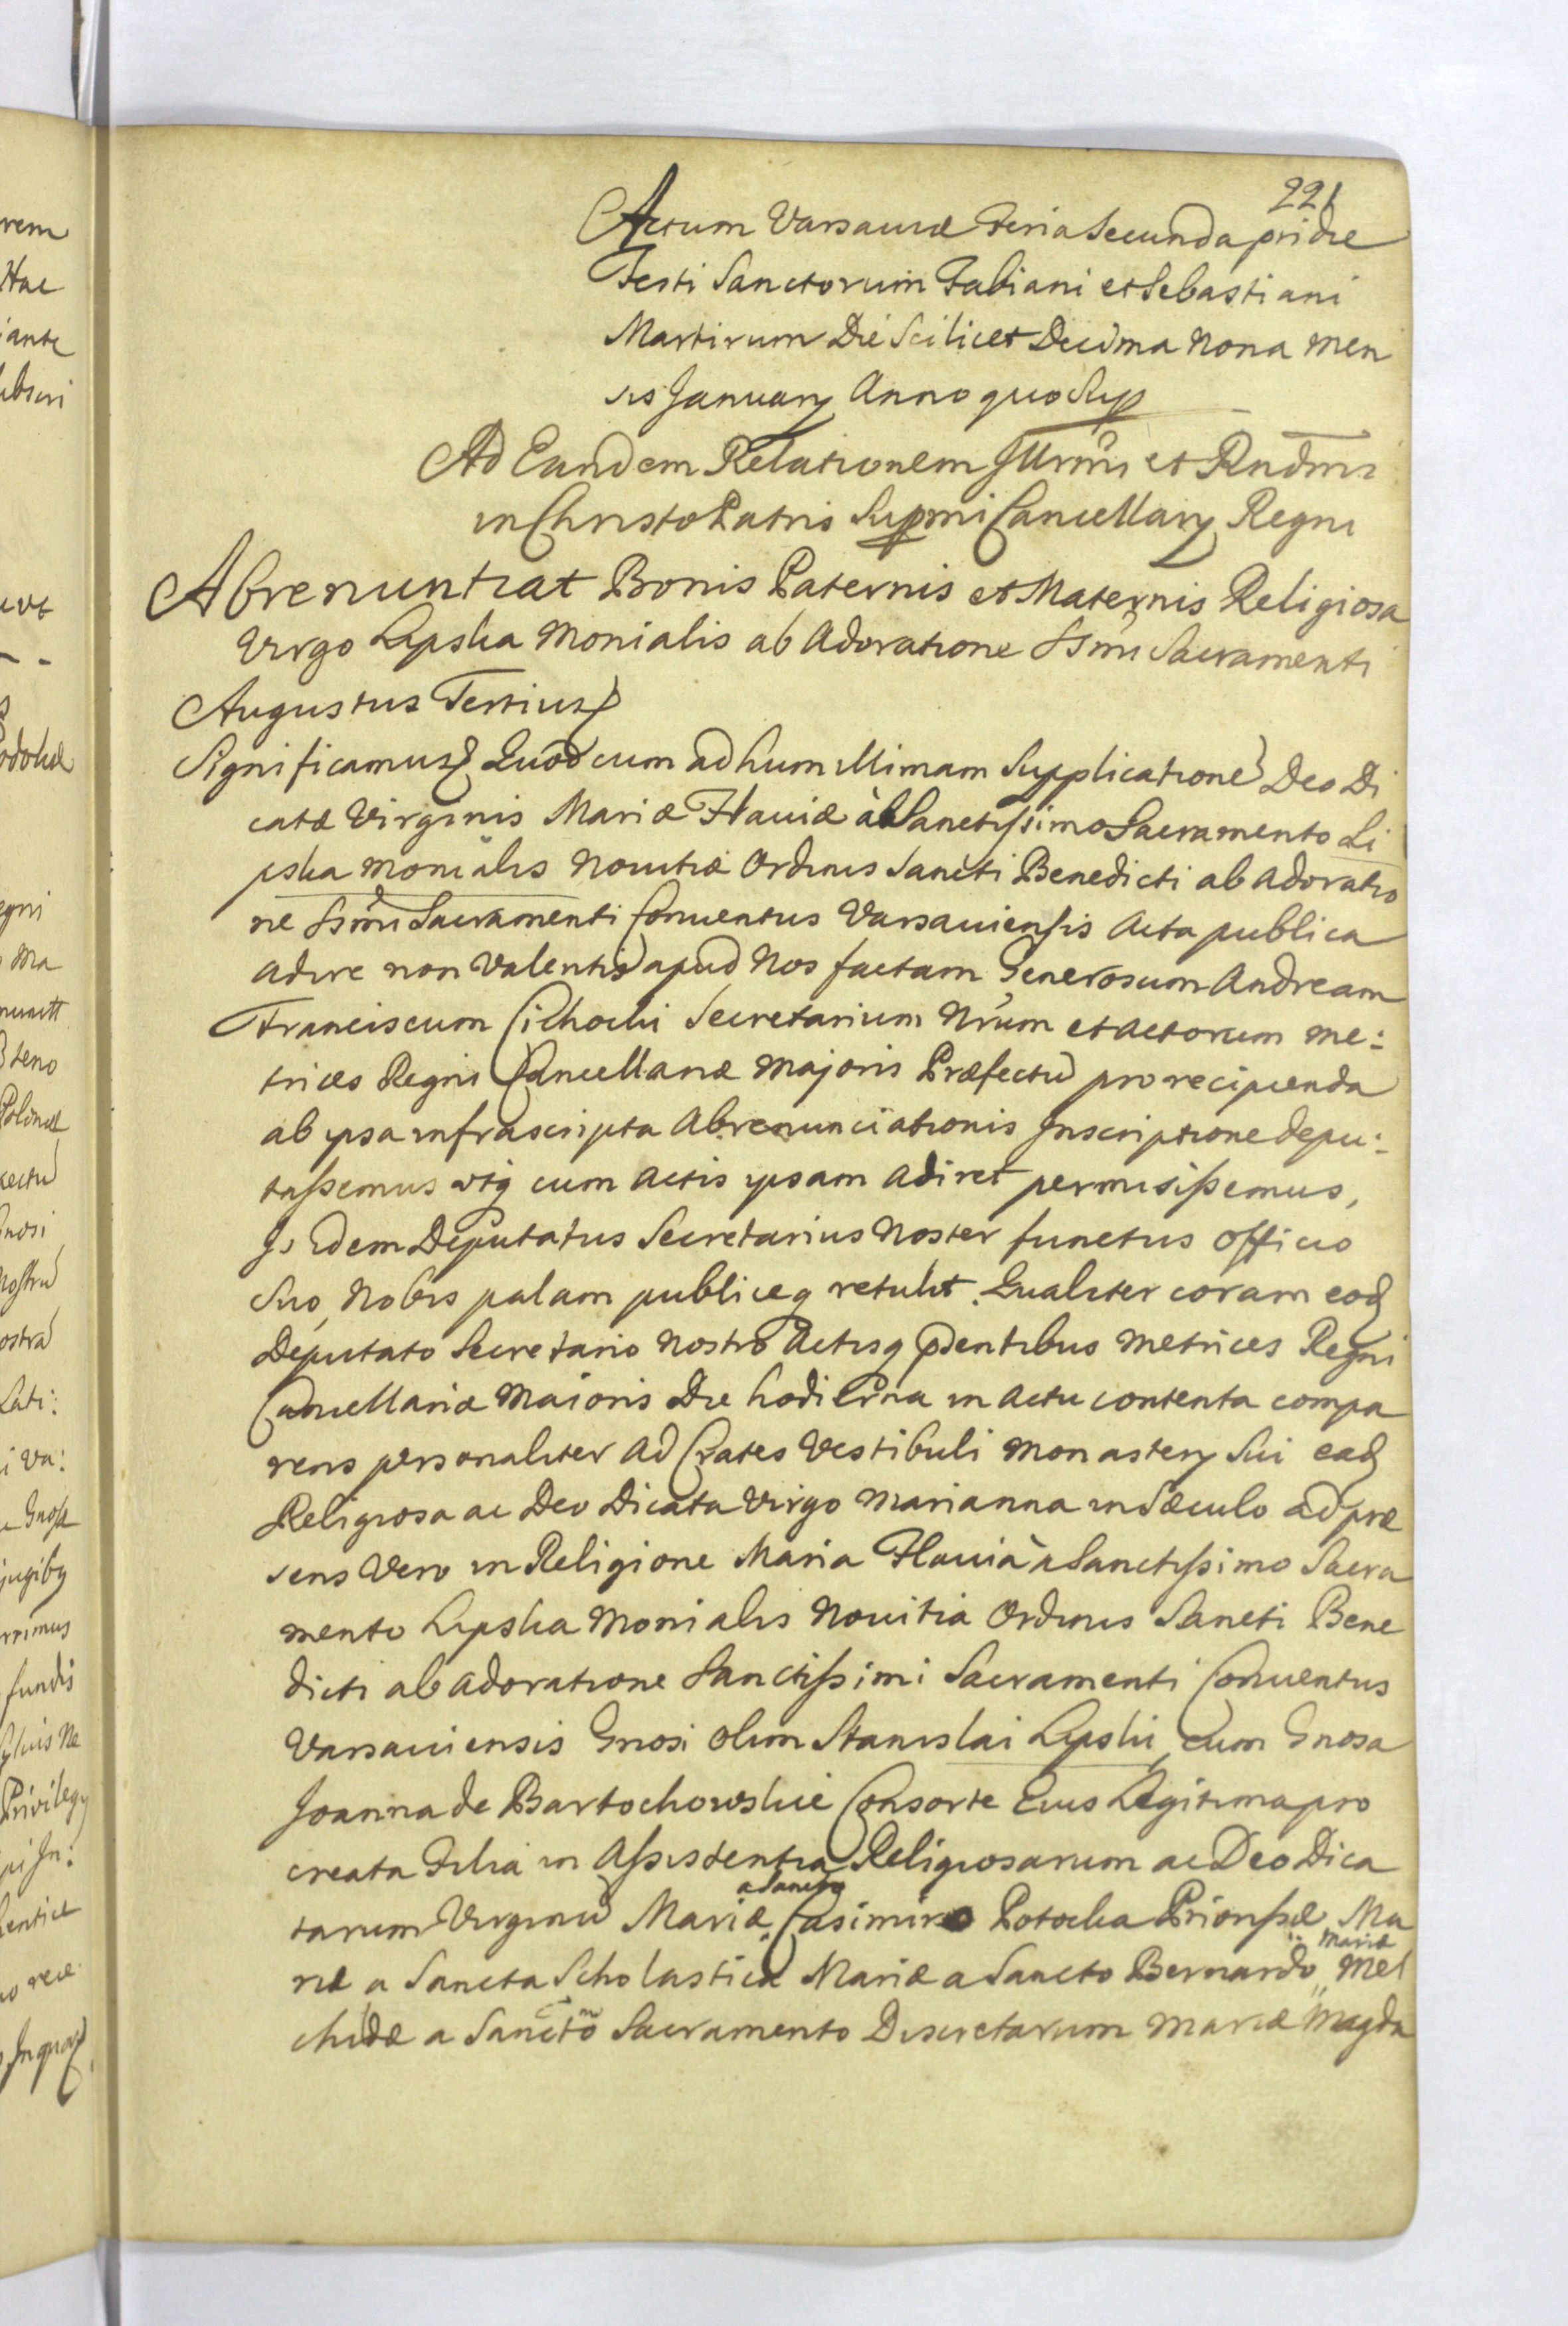 221
Actum Varsauiæ Feria Secunda pridie
Festi Sanctorum Fabiani et Sebastiani
Martirum Die Scilicet Decima Nona Men
sis January Anno quo Sup
Ad Eandem Relationem Illrmi et Rndmi
in Christo Patris Supmi Cancellary Regni
Abrenuntiat Bonis Paternis et Maternis Religiosa
Virgo Lipska Monialis ab Adoratione SSmi Sacramenti
Augustus Tertius
Significamus Quod cum ad humillimam Supplicatione Deo Di
catæ Virginis Mariæ Flauiæ à Sanctissimo Sacramento Li
pska Monialis Nouitiæ Ordinis Sancti Benedicti ab Adoratio
ne SSmi Sacramenti Conuentus Varsauiensis Acta publica
adire non Valentis apud Nos factam Generosum Andream
Franciscum Cichocki Secretarium Nrum et Actorum me:
trices Regni Cancellariæ Majoris Præfectu pro recipienda
ab ipsa infrascripta Abrenunciationis Inscriptione depu:
tassemus utq cum Actis ipsam adiret permisissemus,
Is idem Deputatus Secretarius Noster functus officio
Suo, Nobis palam publiceq retulit. Qualiter coram eod
Deputato Secretario Nostro Actisq pdentibus Metrices Regni
Cancellariæ Maioris Die hodierna in Actu contenta compa
rens personaliter ad Crates Vestibuli Monastery Sui ead
Religiosa ac Deo Dicata Virgo Marianna in Sæculo ad præ
sens Vero in Religione Maria Flauia à Sanctissimo Sacra
mento Lipska Monialis Nouitia Ordinis Sancti Bene
dicti ab Adoratione Sanctissimi Sacramenti Conuentus
Varsauiensis Gnosi olim Stanislai Lipski, cum Gnosa
Joanna de Bartochowskie Consorte Eius Legitima pro
creata Filia in Assistentia Religiosarum ac Deo Dica
tarum Virginu Mariæ a Sancto Casimiro Potocka Priorissæ, Ma
riæ a Sancta Scholastica Mariæ a Sancto Bernardo, Mariæ Mel
childæ a Sancto Sacramento Discretarum Mariæ Magda